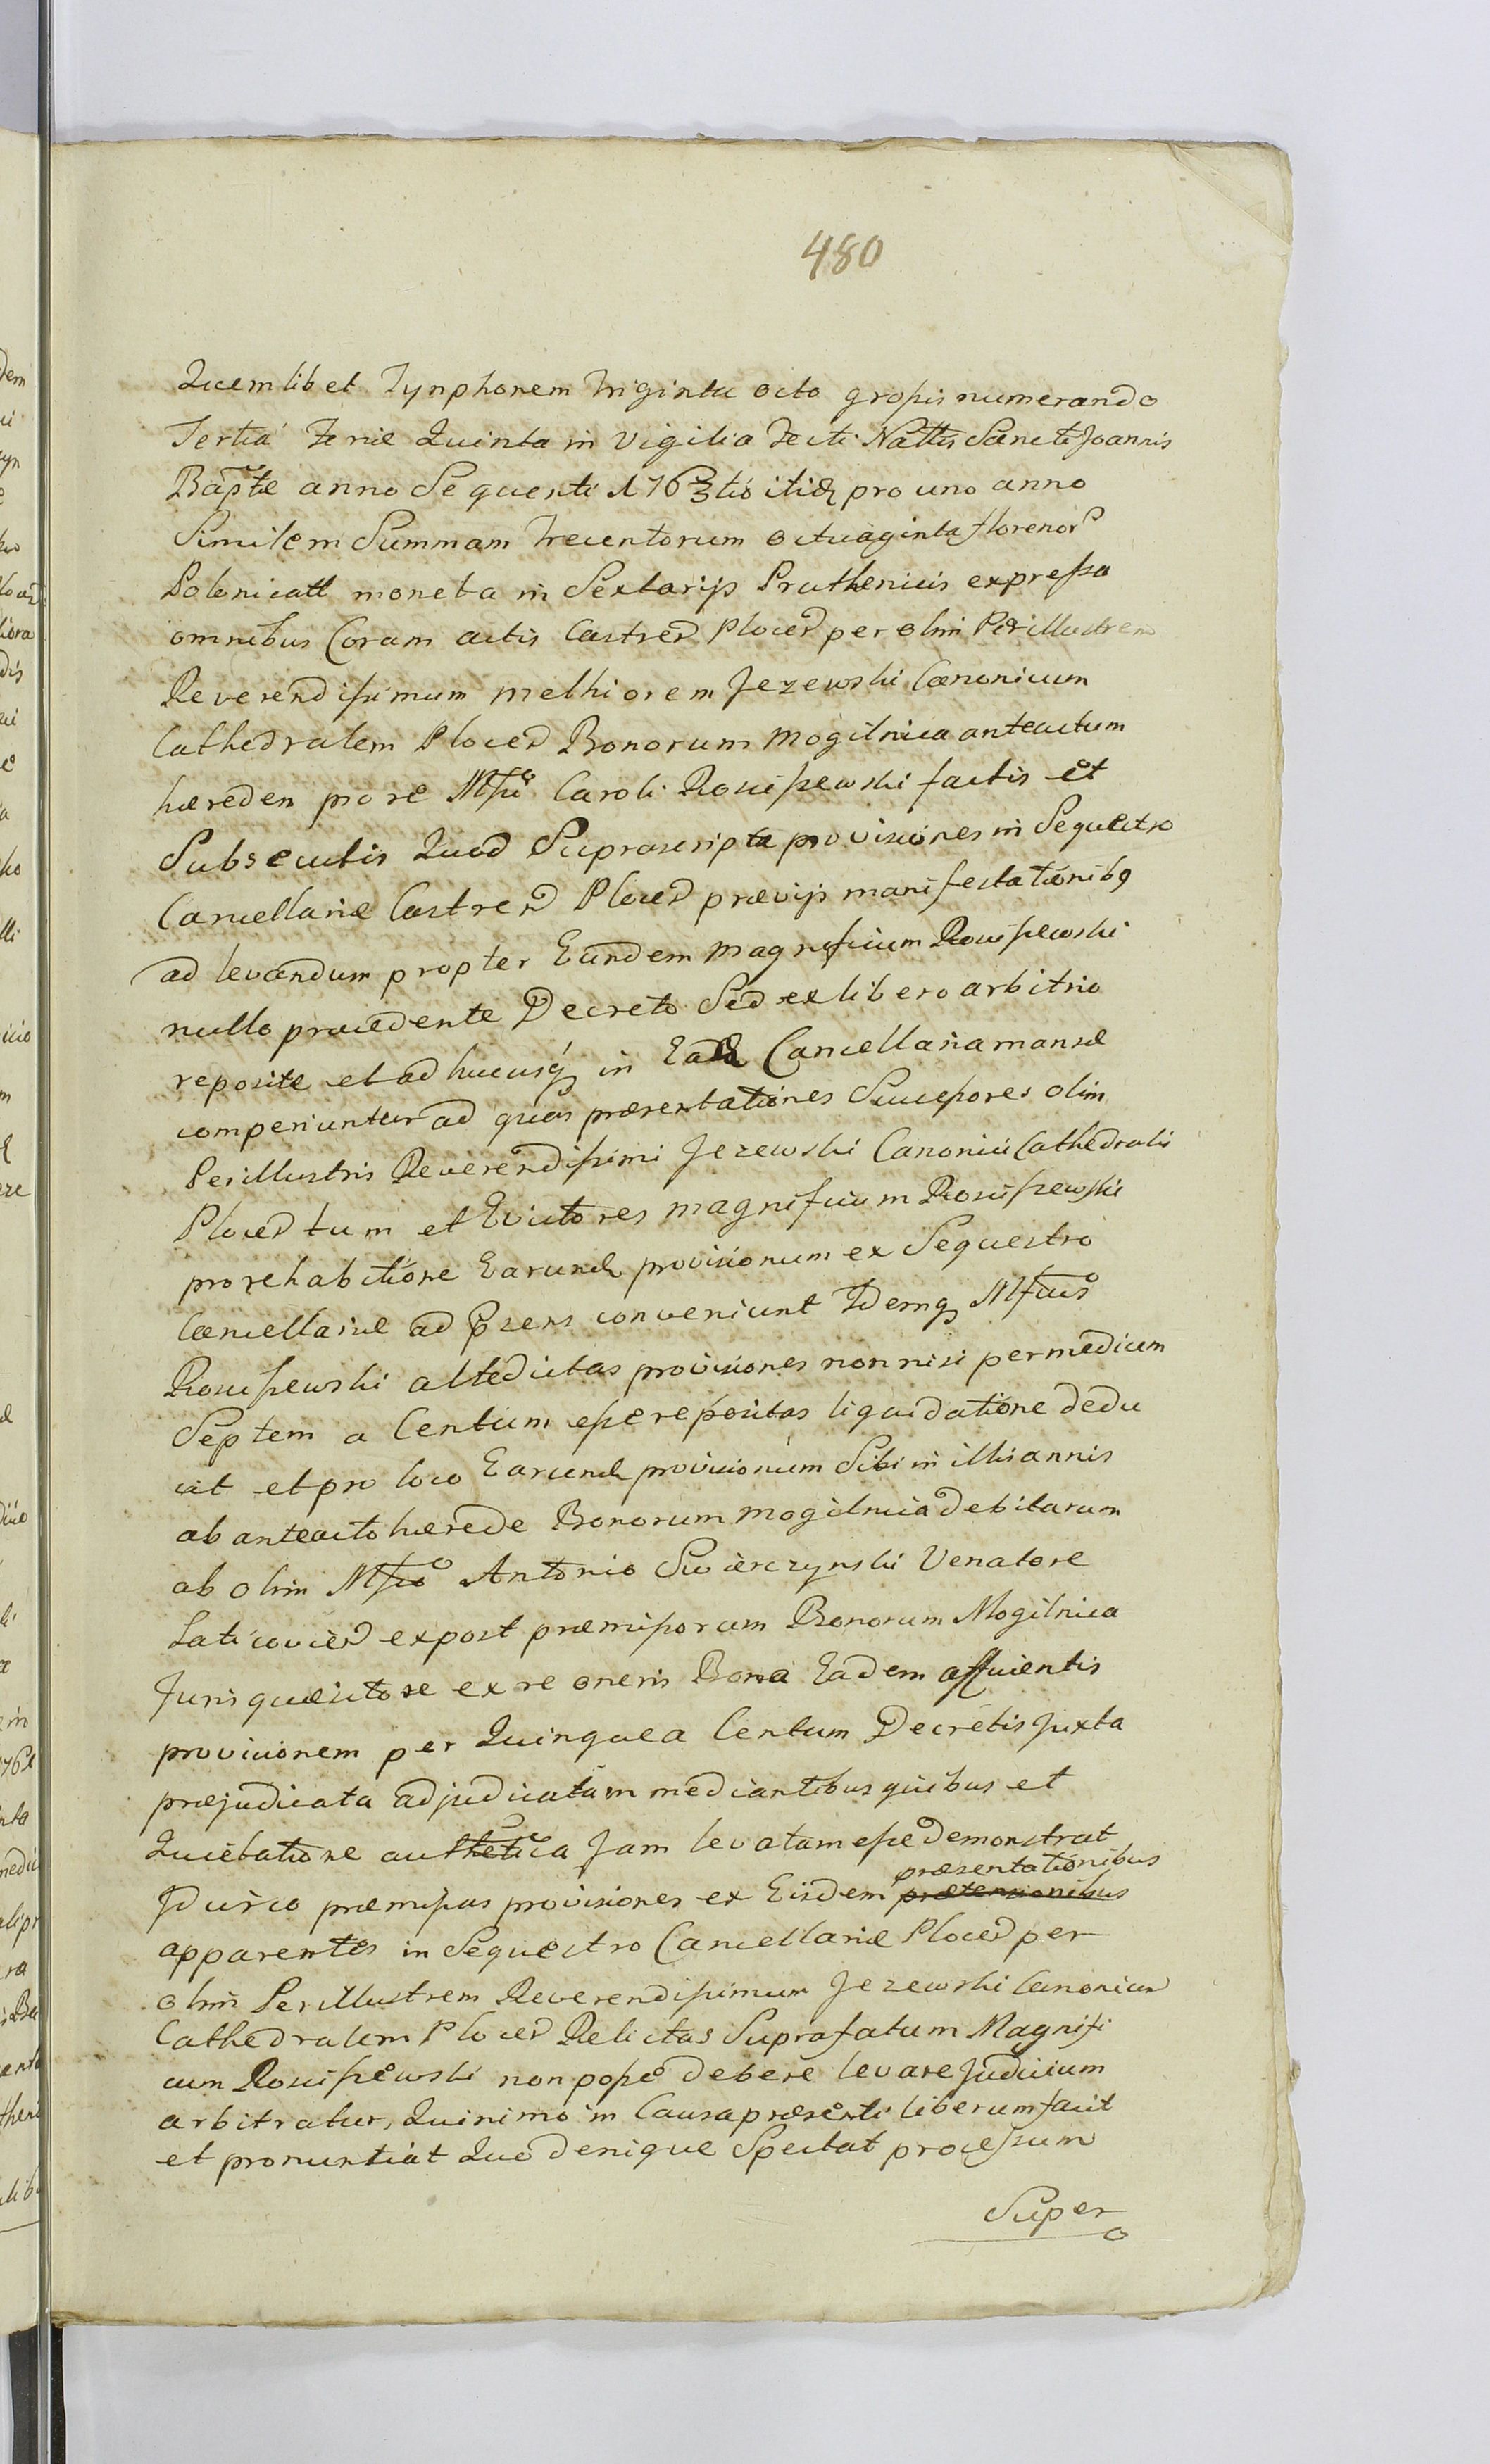 480
Quemlibet Tynphonem triginta octo grossis numerando
Tertia Feriæ Quinta in Vigilia Festi Nattis Sancti Joannis
Baptæ anno Sequenti 1763tio itidq pro uno anno
Similem Summam Trecentorum octuaginta florenor
Polonicall moneta in Sextarijs Pruthenicis expressa
omnibus Coram actis Castren Plocen per olim Perillustrem
Reverendissimum Melhiorem Jezewski Canonicum
Cathedralem Plocen Bonorum Mogilnica anteactum
hæredem pro re Mfci Caroli Rosciszewski factis et
Subsecutis Quod Suprascriptæ provisiones in Sequestro
Cancellariæ Castren Plocen prævijs manifestationibq
ad levandum propter Eundem Magnificum Rosciszewski
nullo præcedente Decreto Sed ex libero arbitrio
repositæ et ad hucusq in Cancellaria mansæ
comperiuntur ad quas præsentationes Successores olim
Perillustris Reverendissimi Jezewski Canonici Cathedralis
Plocen tum et Evictores Magnificum Rosciszewski
pro rehabitione Earundq provisionum ex Sequestro
Cancellariæ ad præsens conveniunt Idemq Mfcus
Rosciszewski altedictas provisiones non nisi per medium
Septem a Centum esse repositas liquidatione dedu
cit et pro loco Earundq provisionum Sibi in illis annis
ab anteacto hærede Bonorum Mogilnica debitarum
ab olim Mfco Antonio Swierczynski Venatore
expost præmissorum Bonorum Mogilnica
Juris quæsitore ex re oneris Bona Eadem afficientis
provisionem per Quinque a Centum Decretis juxta
præjudicata adjudicatam mediantibus quibus et
Quietatione authetica Jam levatam esse demonstrat
Id circo præmissas provisiones ex Eisdem præsentationibus
apparentes in Sequestro Cancellariæ Plocen per
olim Perillustrem Reverendissimum Jezewski Canonicum
Cathedralem Plocen Relictas Suprafatum Magnifi
cum Rosciszewski non posse debere levare Judicium
arbitratur, Quinimo in Causa præsenti liberum facit
et pronuntiat Quo denique Spectat processum
Super